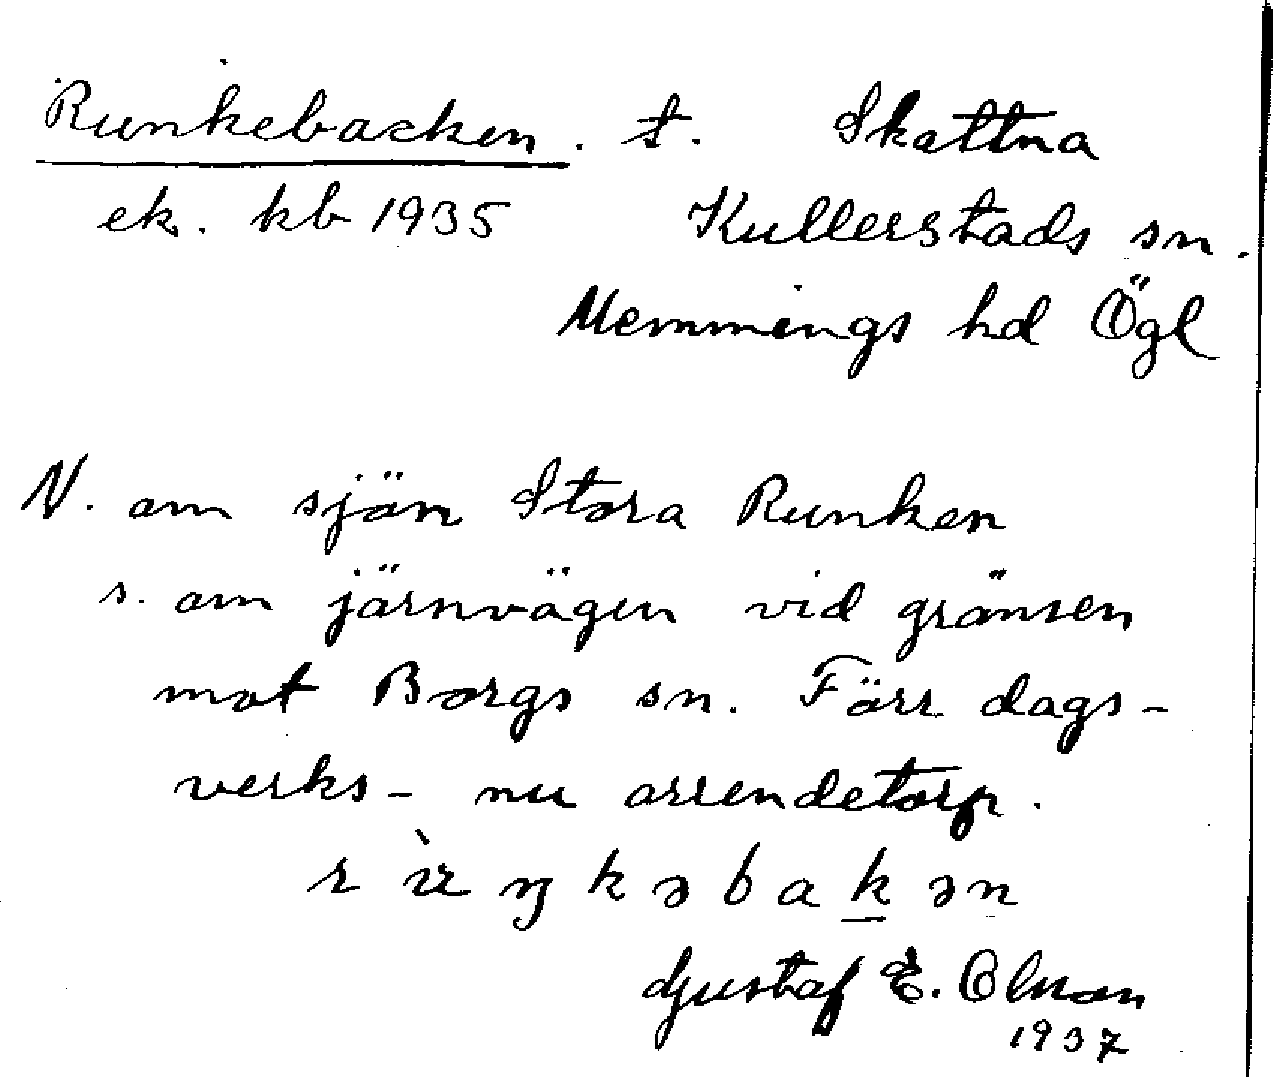 Runkebacken. t. Skattna
ek. kb 1935 Kullerstads sn.
Memmings hd Ögl
N. om sjön Stora Runken
s. om järnvägen vid gränsen
mot Borgs sn. Förr dags-
verks- nu arrendetorp.
r ù ŋ k ə b a k ə n
Gustaf E. Olman
1937